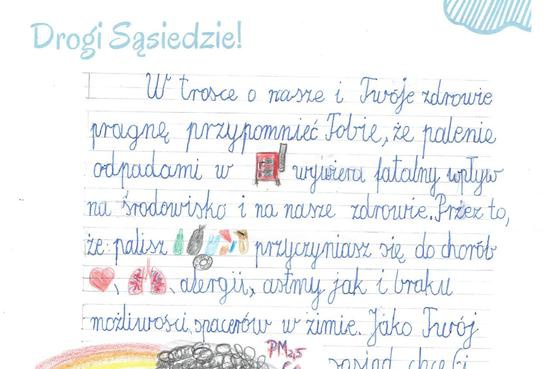 Drogi Sąsiedzie!
W trosce o nasze i Twoje zdrowie
pragnę przypomnieć Tobie, że palenie
odpadami w wywiera fatalny wpływ
na środowisko i na nasze zdrowie. Przez to,
że palisz przyczyniasz się do chorób
, , alergii, astmy jak i braku
możliwości spacerów w zimie. Jako Twój
PM2,5
sąsiad chcę